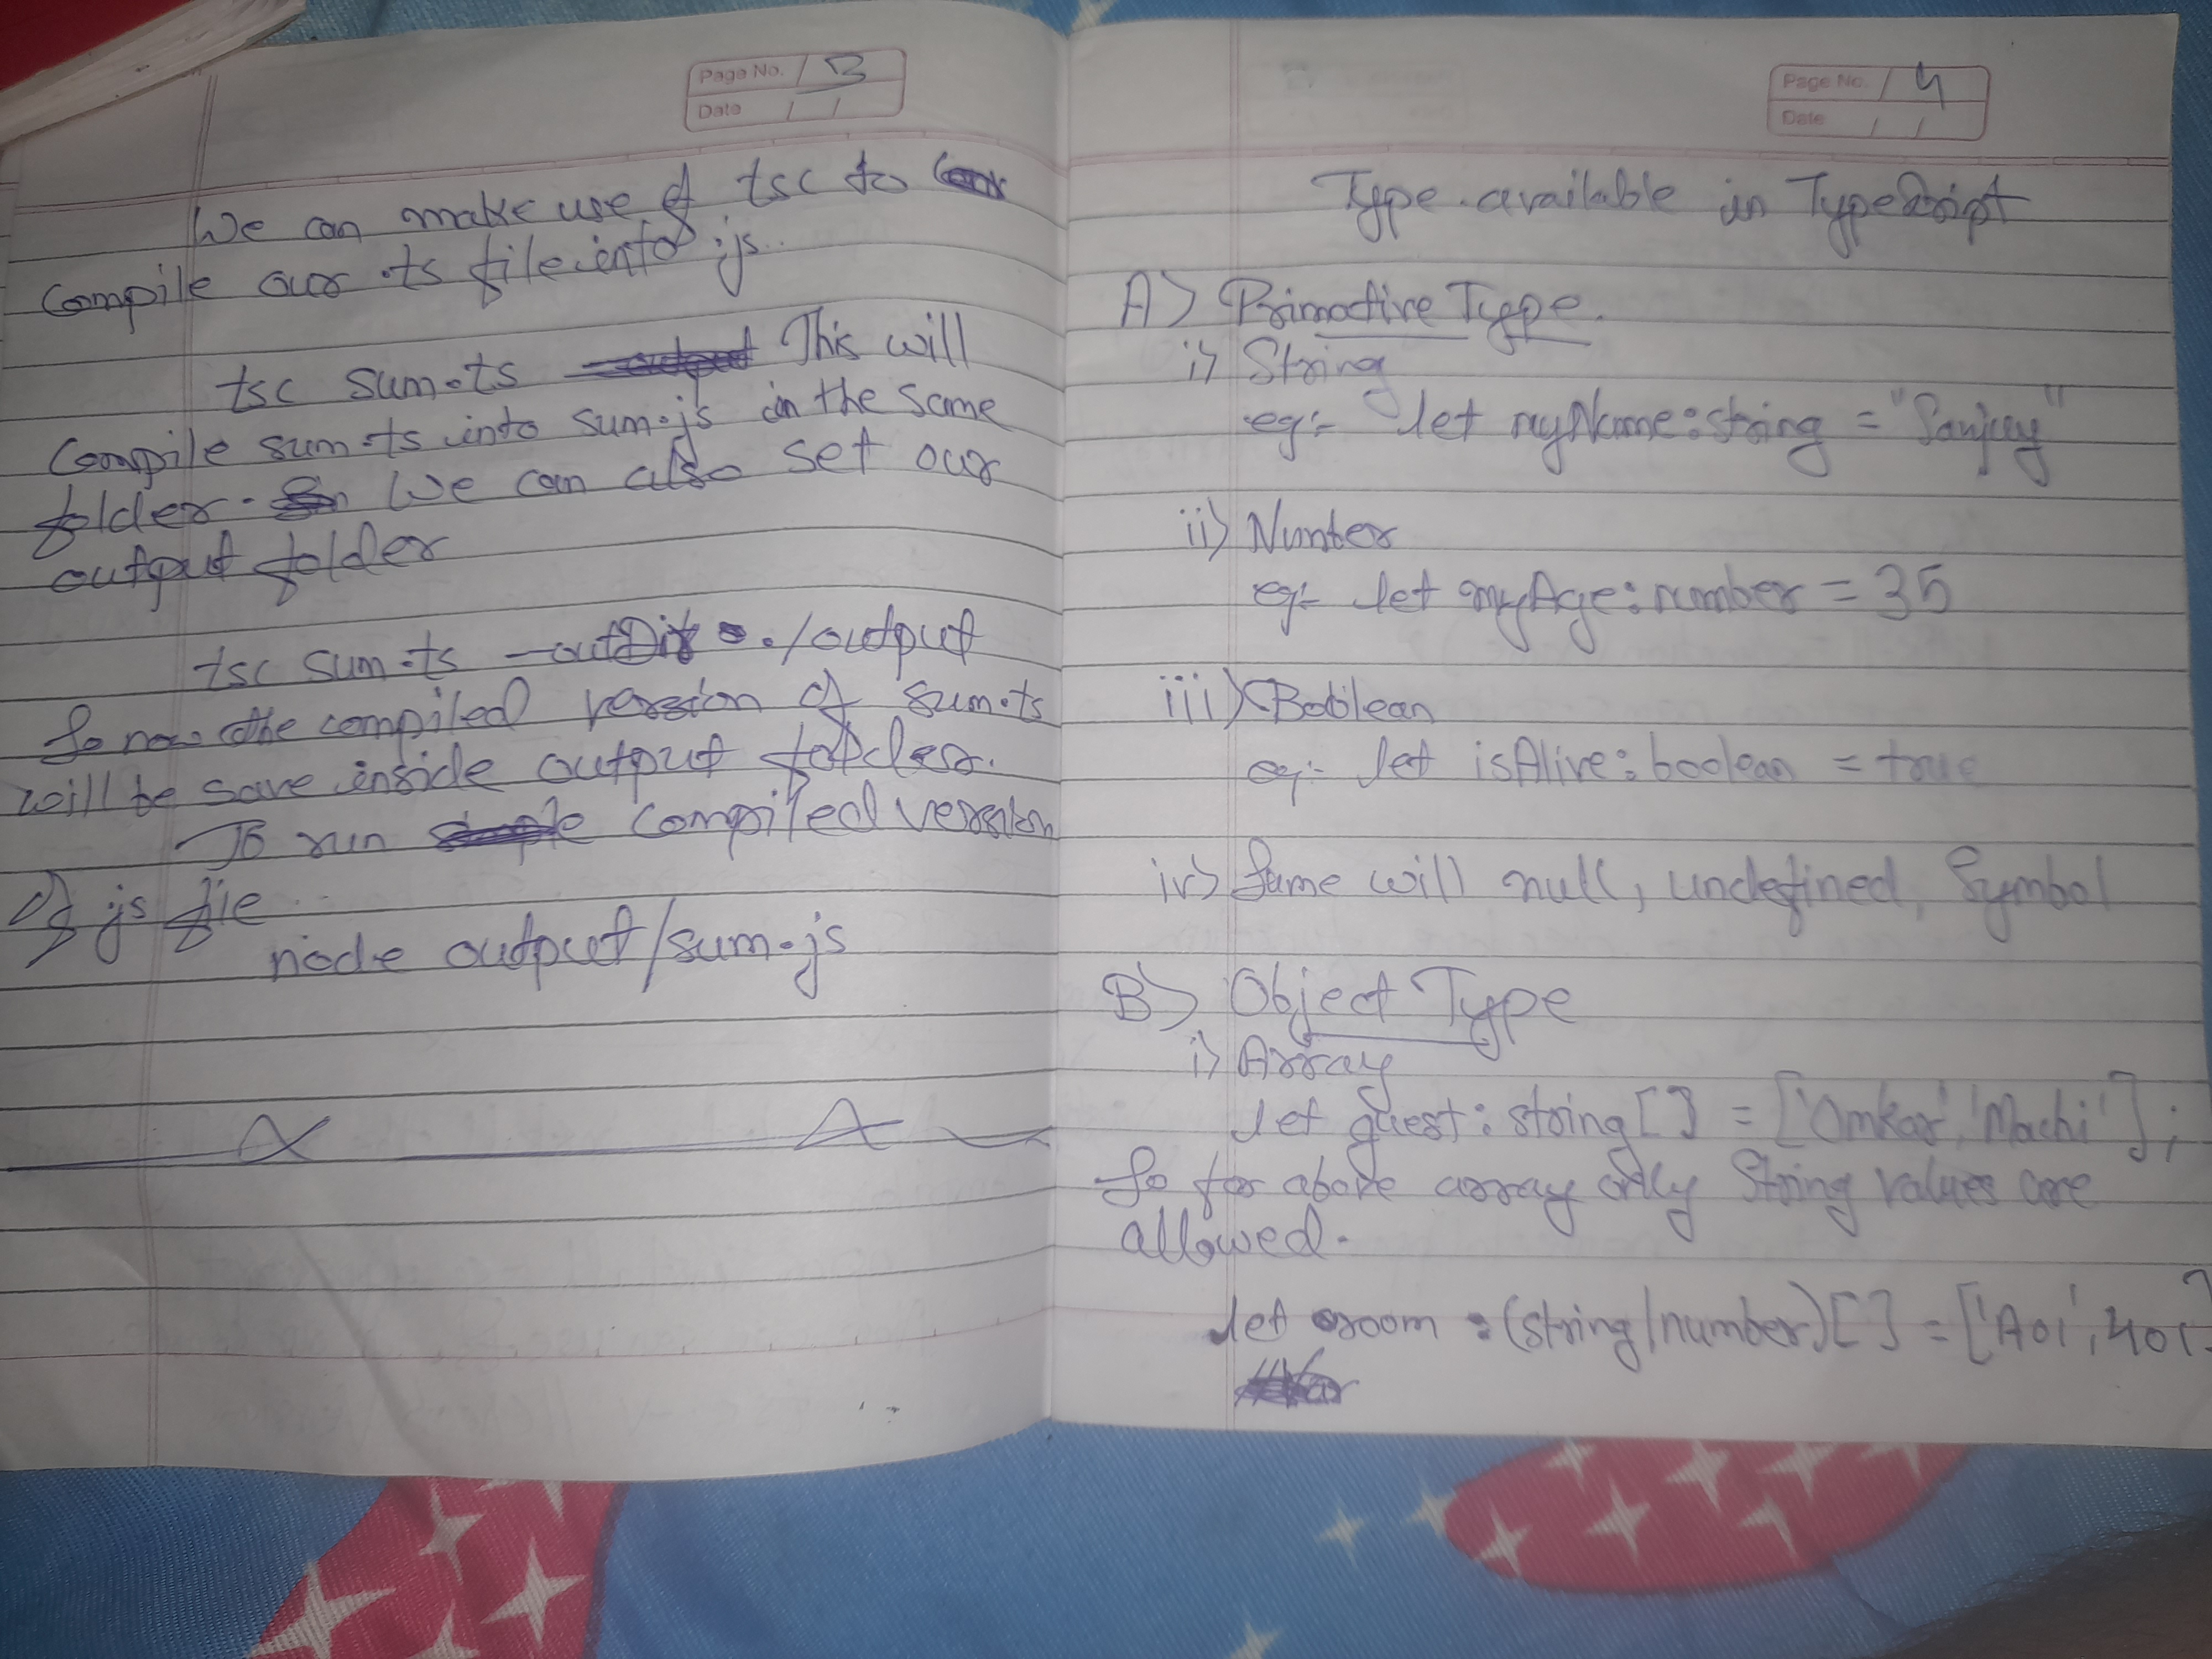 Page No. 3
Date / /
We can make use of tsc to
compile our .ts file into .js
tsc sum.ts This will
compile sum.ts into sum.js in the same
folder. We can also set our
output folder
tsc sum.ts -outDir ./output
So now the compiled version of sum.ts
will be save inside output folder.
To run compiled version
of js fie
node output/sum.js
Page No. 4
Date / /
Type available in TypeScript
A) Primative Type.
i) String
eg:- let myName:string = "Sanjay"
ii) Number
eg:- let myAge:number = 35
iii) Boolean
eg:- let isAlive:boolean = true
iv) Same will null, undefined, Symbol
B) Object Type
i) Array
let guest: string[] = ['Omkar', 'Machi'];
So for above array only String values are
allowed.
let room :(string|number)[] = ['A01', 401]